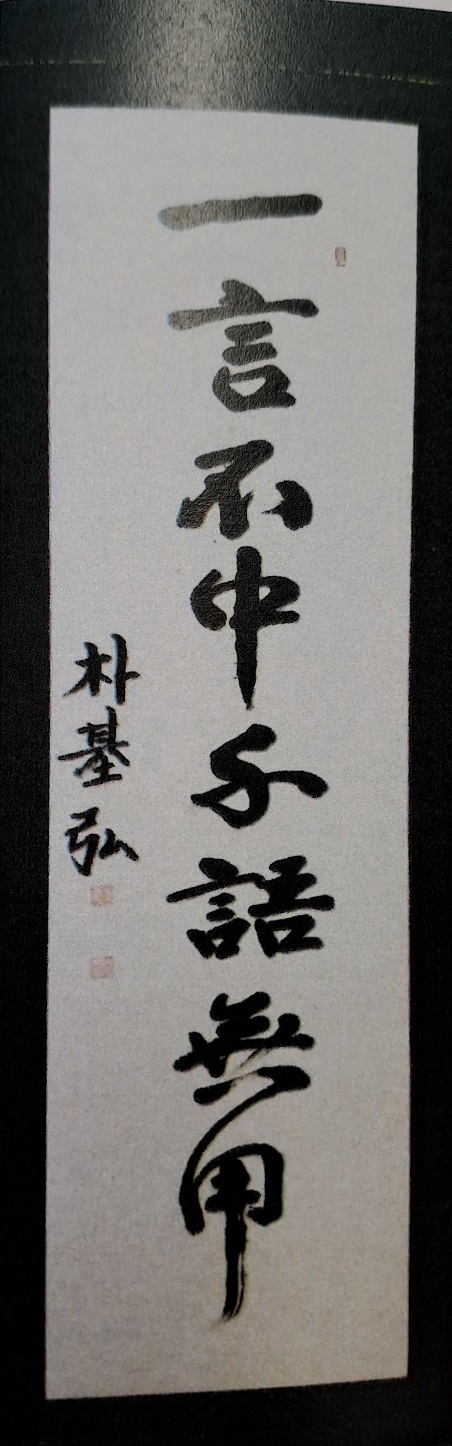 一言不中千語無用
朴基弘